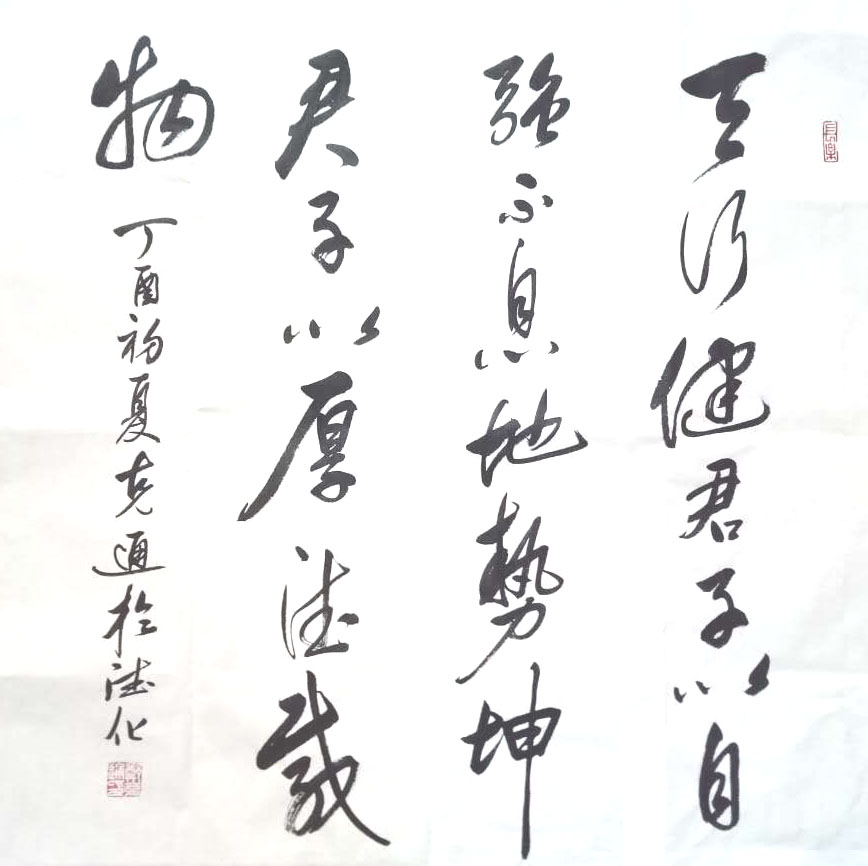 天行健君子以自
強不息地勢坤
君子以厚德載
物
丁酉初夏克通於德化
長樂